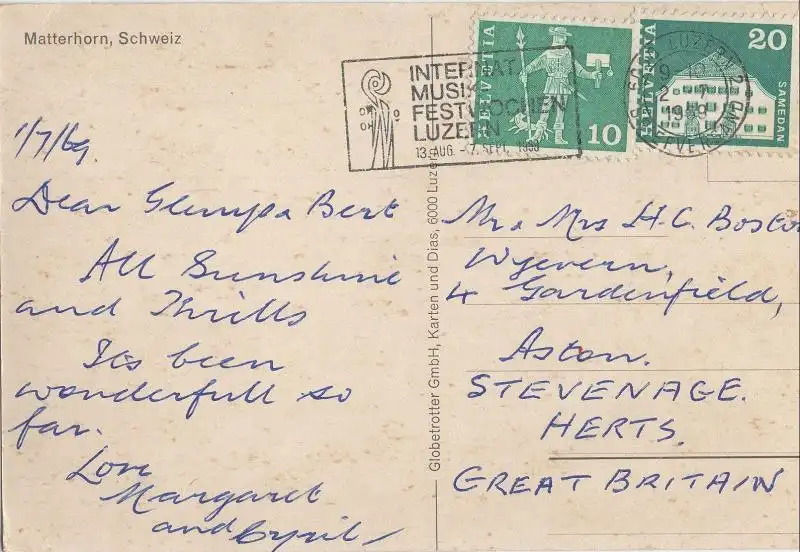 Matterhorn, Schweiz
INTERNAT.
MUSIK
FESTWOCHEN
LUZERN
13. AUG. - 7. SEPT. 1969
HELVETIA
10
HELVETIA
20
SAMEDAN
LUZERN 2
1969
1/7/69.
Dear Glennys & Bert
All Sunshine
and Thrills
Its been
wonderfull so
far.
Love
Margaret
and Cyril
Globetrotter GmbH, Karten und Dias, 6000 Luzern
Mr & Mrs H.C. Boston
Wyevern,
4 Gardenfield,
Aston.
STEVENAGE.
HERTS.
GREAT BRITAIN